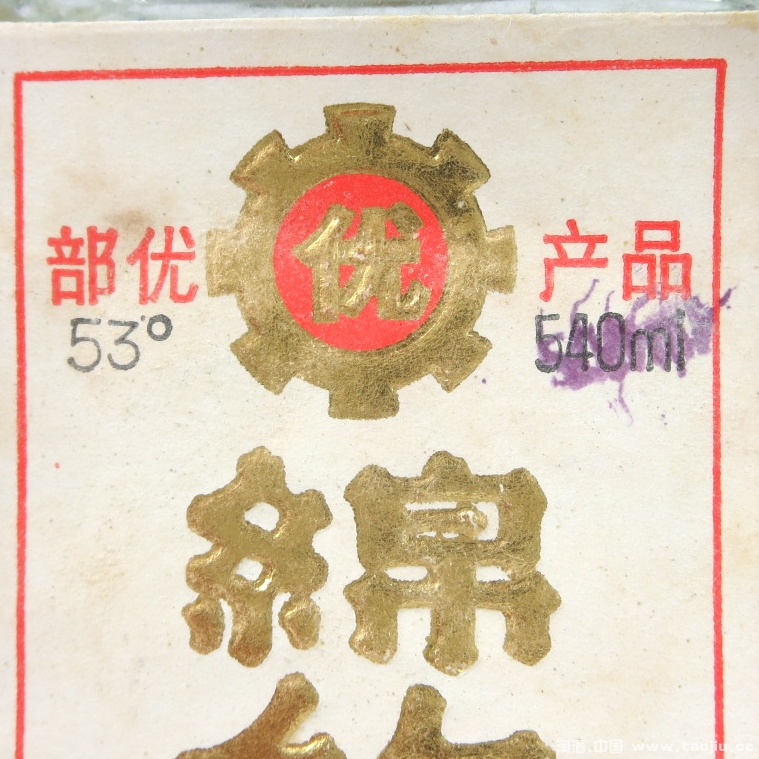 部优 优 产品
53° 540ml
綿
www.taojiu.cc